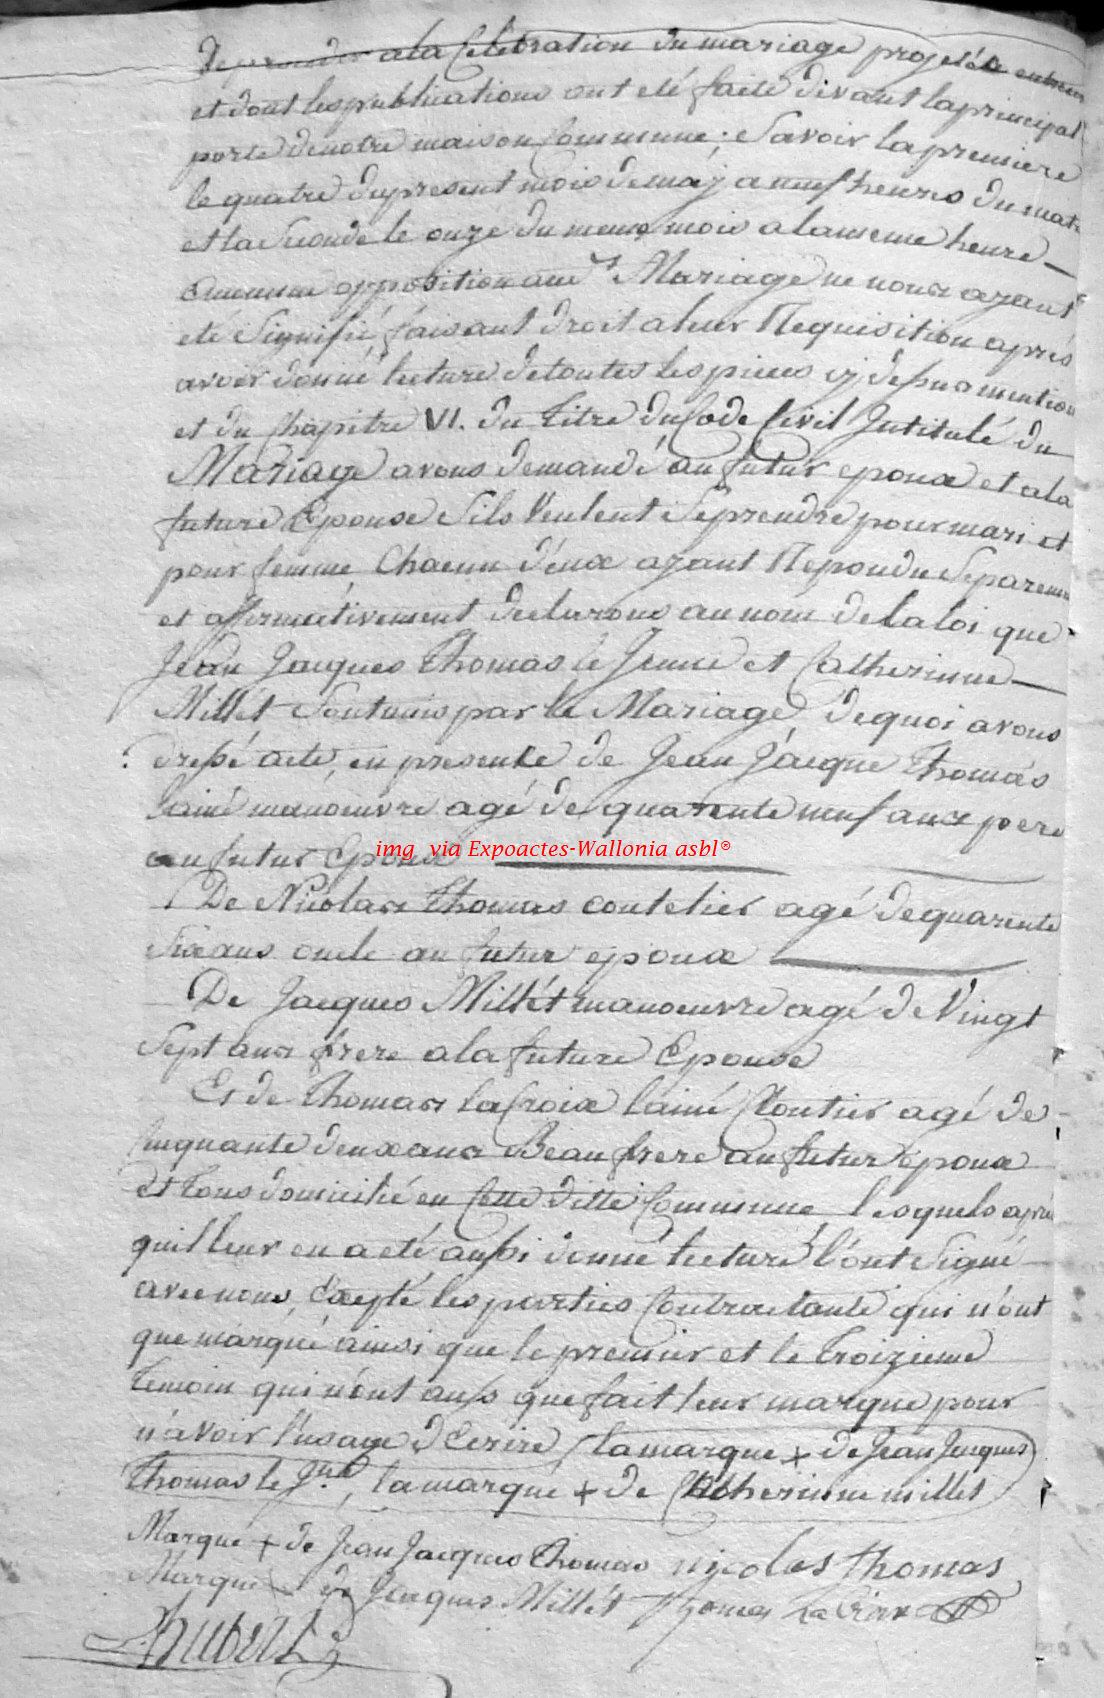 de proceder a la Celebration du mariage projetée entreux
et dont les publications ont eté faite devant la principal
porte de notre maison Commune; Savoir la premiere
le quatre du present mois de may a neuf heures du mat
et la Seconde le onze du meme mois a la meme heure
aucunne opposition aud.t Mariage ne nous ayant
eté Signifié faisant droit a leur Requisition apres
avoir donné lecture de toutes les pieces cy dessus mention
et du Chapitre VI. du titre du Code Civil Intitulé du
Mariage avons demandé au futur epoux et a la
future Epouse Sils Veulent Se prendre pour mari et
pour femme, Chacun d'eux ayant Repondu Separemen
et affirmativement declarons au nom de la loi que
Jean Jacques Thomas le Jeune et Catherinne
Millét Sont unis par le Mariage, de quoi avons
dressé acte, en presence de Jean Jacque Thomas
lainé manoeuvre agé de quarente neuf ans pere
au futur Epoux
img via Expoactes-Wallonia asbl®
De Nicolas Thomas coutelier agé de quarente
Six ans oncle au futur epoux
De Jacques Millét manoeuvre agé de Vingt
Sept ans frere a la future Epouse
Et de Thomas la Croix lainé Cloutier agé de
Cinquante deux ans Beaufrere au futur epoux
et tous domicilié en Cette ditte Commune lesquels aprè
quil leur en a eté aussi donné lecture l'ont Signé
avec nous, Excepté les parties Contractante qui n'ont
que marqué ainsi que le premier et le troizieme
temoin qui n'ont aussi que fait leur marque pour
n'avoir l'usage d'Ecrire, la marque + de Jean Jacques
Thomas le Jne, la marque + de Catherinne millet
Marque + de Jean Jacques Thomas nicolas thomas
Marque + de Jacques Millét Thomas La Croix
Hubert